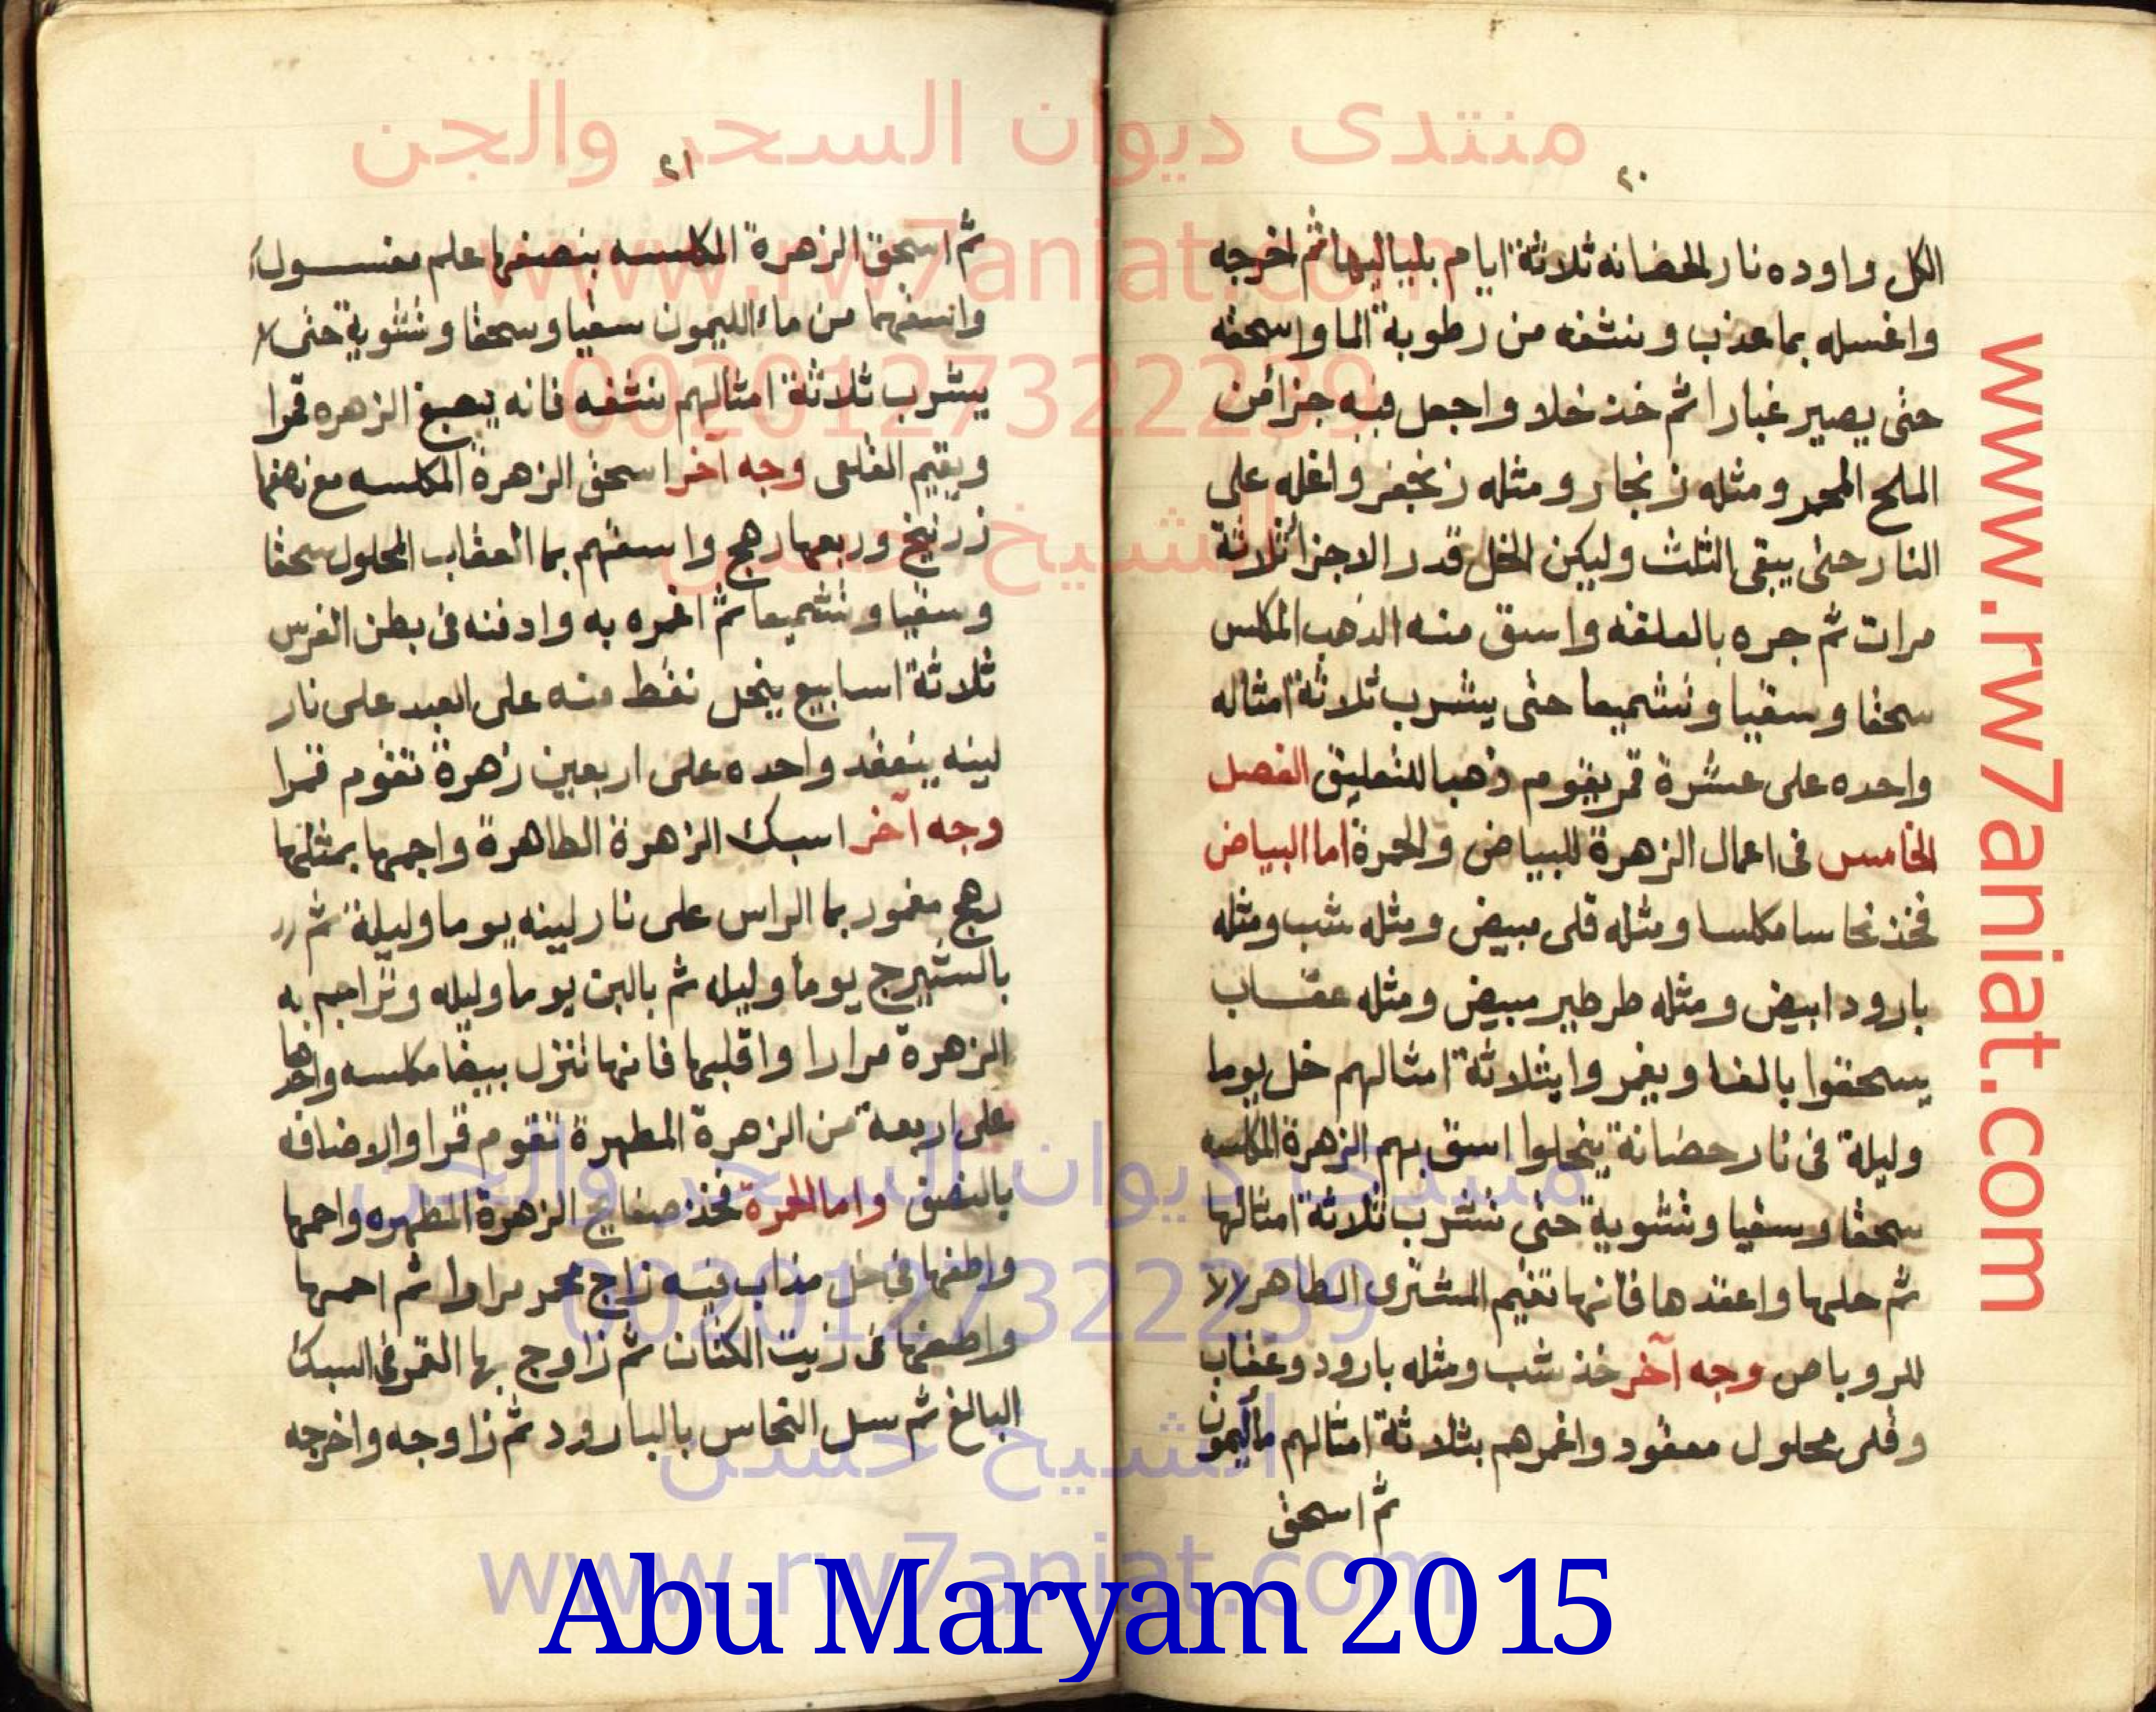 ٢٠
الكل واوده نار الحضانه ثلاثة ايام بلياليها ثم اخرجه
واغسله بما عذب ونشفه من رطوبة الما واسحقه
حتى يصير غبارا ثم خذ خلا واجعل فيه جزا من
الملح المحمر ومثله زنجار ومثله زنجفر واغله على
النار حتى يبقى الثلث وليكن الخل قدر الاجزا ثلاثة
مرات ثم جره بالعلقه واسق منه الذهب المكلس
سحقا وسقيا وتشميعا حتى يشرب ثلاثة امثاله
واحده على عشرة قمر يقوم ذهبا للتعليق الفصل
الخامس فى اعمال الزهرة للبياض والحمرة اما البياض
فخذ نحاسا مكلسا ومثله قلى مبيض ومثله شب ومثله
بارود ابيض ومثله طرطير مبيض ومثله عقاب
يسحقوا بالغدا ويغمروا بثلاثة امثالهم خل يوما
وليلة فى نار حضانة ينحلوا اسق بهم الزهرة المكلسه
سحقا وسقيا وتشوية حتى تشرب ثلاثة امثالها
ثم حلها واعقدها فانها تقيم المشترى الطاهر لالا
للروباص وجه آخر خذ شب ومثله بارود وعقاب
وقلى محلول معقود واغمرهم بثلاثة امثالهم ماليمون
ثم اسحق
٢١
ثم اسحق الزهرة المكلسه بنصفها علم مغسول
واسقهما من ماء الليمون سقيا وسحقا وتشوية حتى
يشرب ثلاثة امثالهم نشفه فانه يصبغ الزهره قمرا
ويقيم القلعى وجه آخر اسحق الزهرة المكلسه مع نصفها
زرنيخ وربعها رهج واسقهم بما العقاب المحلول سحقا
وسقيا وتشميعا ثم اغمره به وادفنه فى بطن الفرس
ثلاثة اسابيع ينحل نقط منه على العبد على نار
لينه ينعقد واحده على اربعين زهرة تقوم قمرا
وجه آخر اسبك الزهرة الطاهرة واجمها بمثلها
رهج مغمور بما الراس على نار لينه يوما وليلة ثم
بالشيرج يوما وليله ثم بالبن يوما وليله وتراجم به
الزهرة مرارا واقلبها فانها تنزل بيضا مكلسه واحدها
على اربعة من الزهرة المطهرة تقوم قمرا والاضافه
بالنصف واما الحمرة فخذ صفايح الزهرة المطهره واحمها
واطفها فى خل مذاب فيه زاج محمر مرارا ثم احمها
واطفها فى زيت الكتان ثم زاوج بها القمر فى السبك
البالغ ثم سل النحاس بالبارود ثم زاوجه واخرجه
منتدى ديوان السحر والجن
www.rw7aniat.com
00201273222239
الشيخ حسن
منتدى ديوان السحر والجن
00201273222239
الشيخ حسن
www.rw7aniat.com
www.rw7aniat.com
Abu Maryam 2015